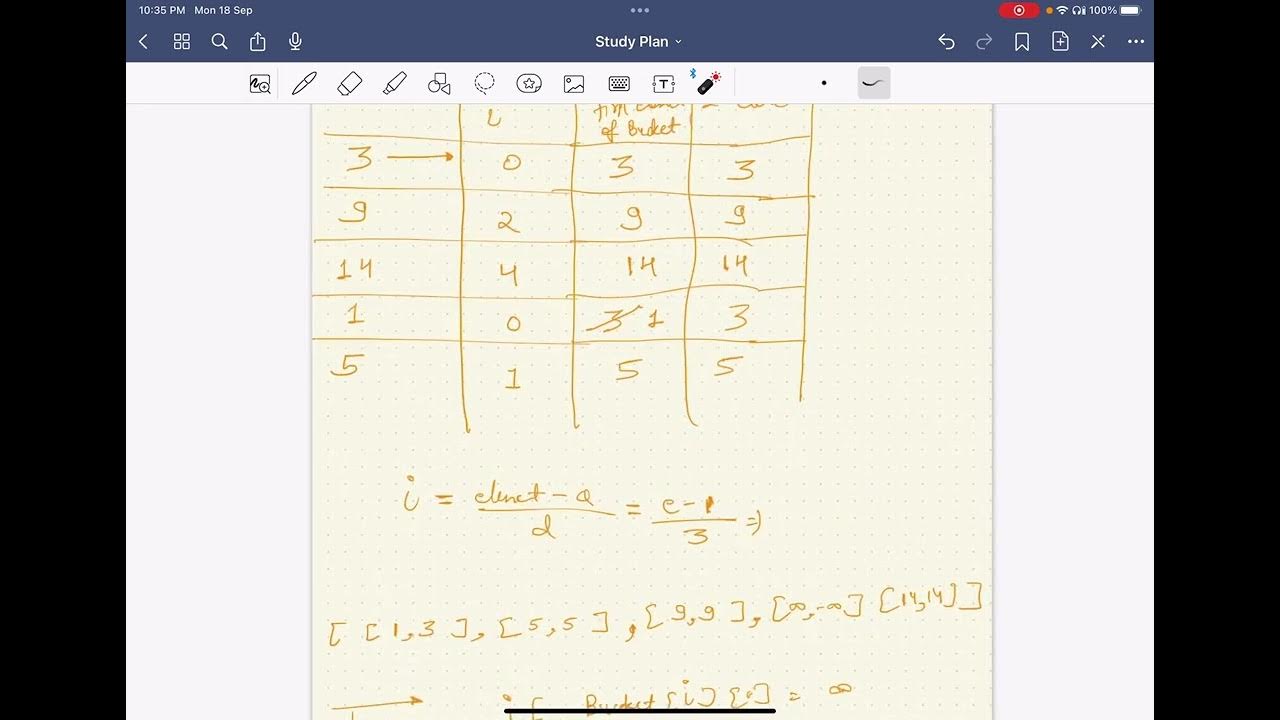 10:35 PM Mon 18 Sep
100%
Study Plan
T
i
of Bucket
3 → 0 3 3
9 2 9 9
14 4 14 14
1 0 3 1 3
5 1 5 5
i = - a / d = e - 1 / 3 ⇒
[ [ 1, 3 ], [ 5, 5 ], [ 9, 9 ], [ ∞, -∞ ] [ 14, 14 ] ]
Bucket [ i ] [ ] = ∞